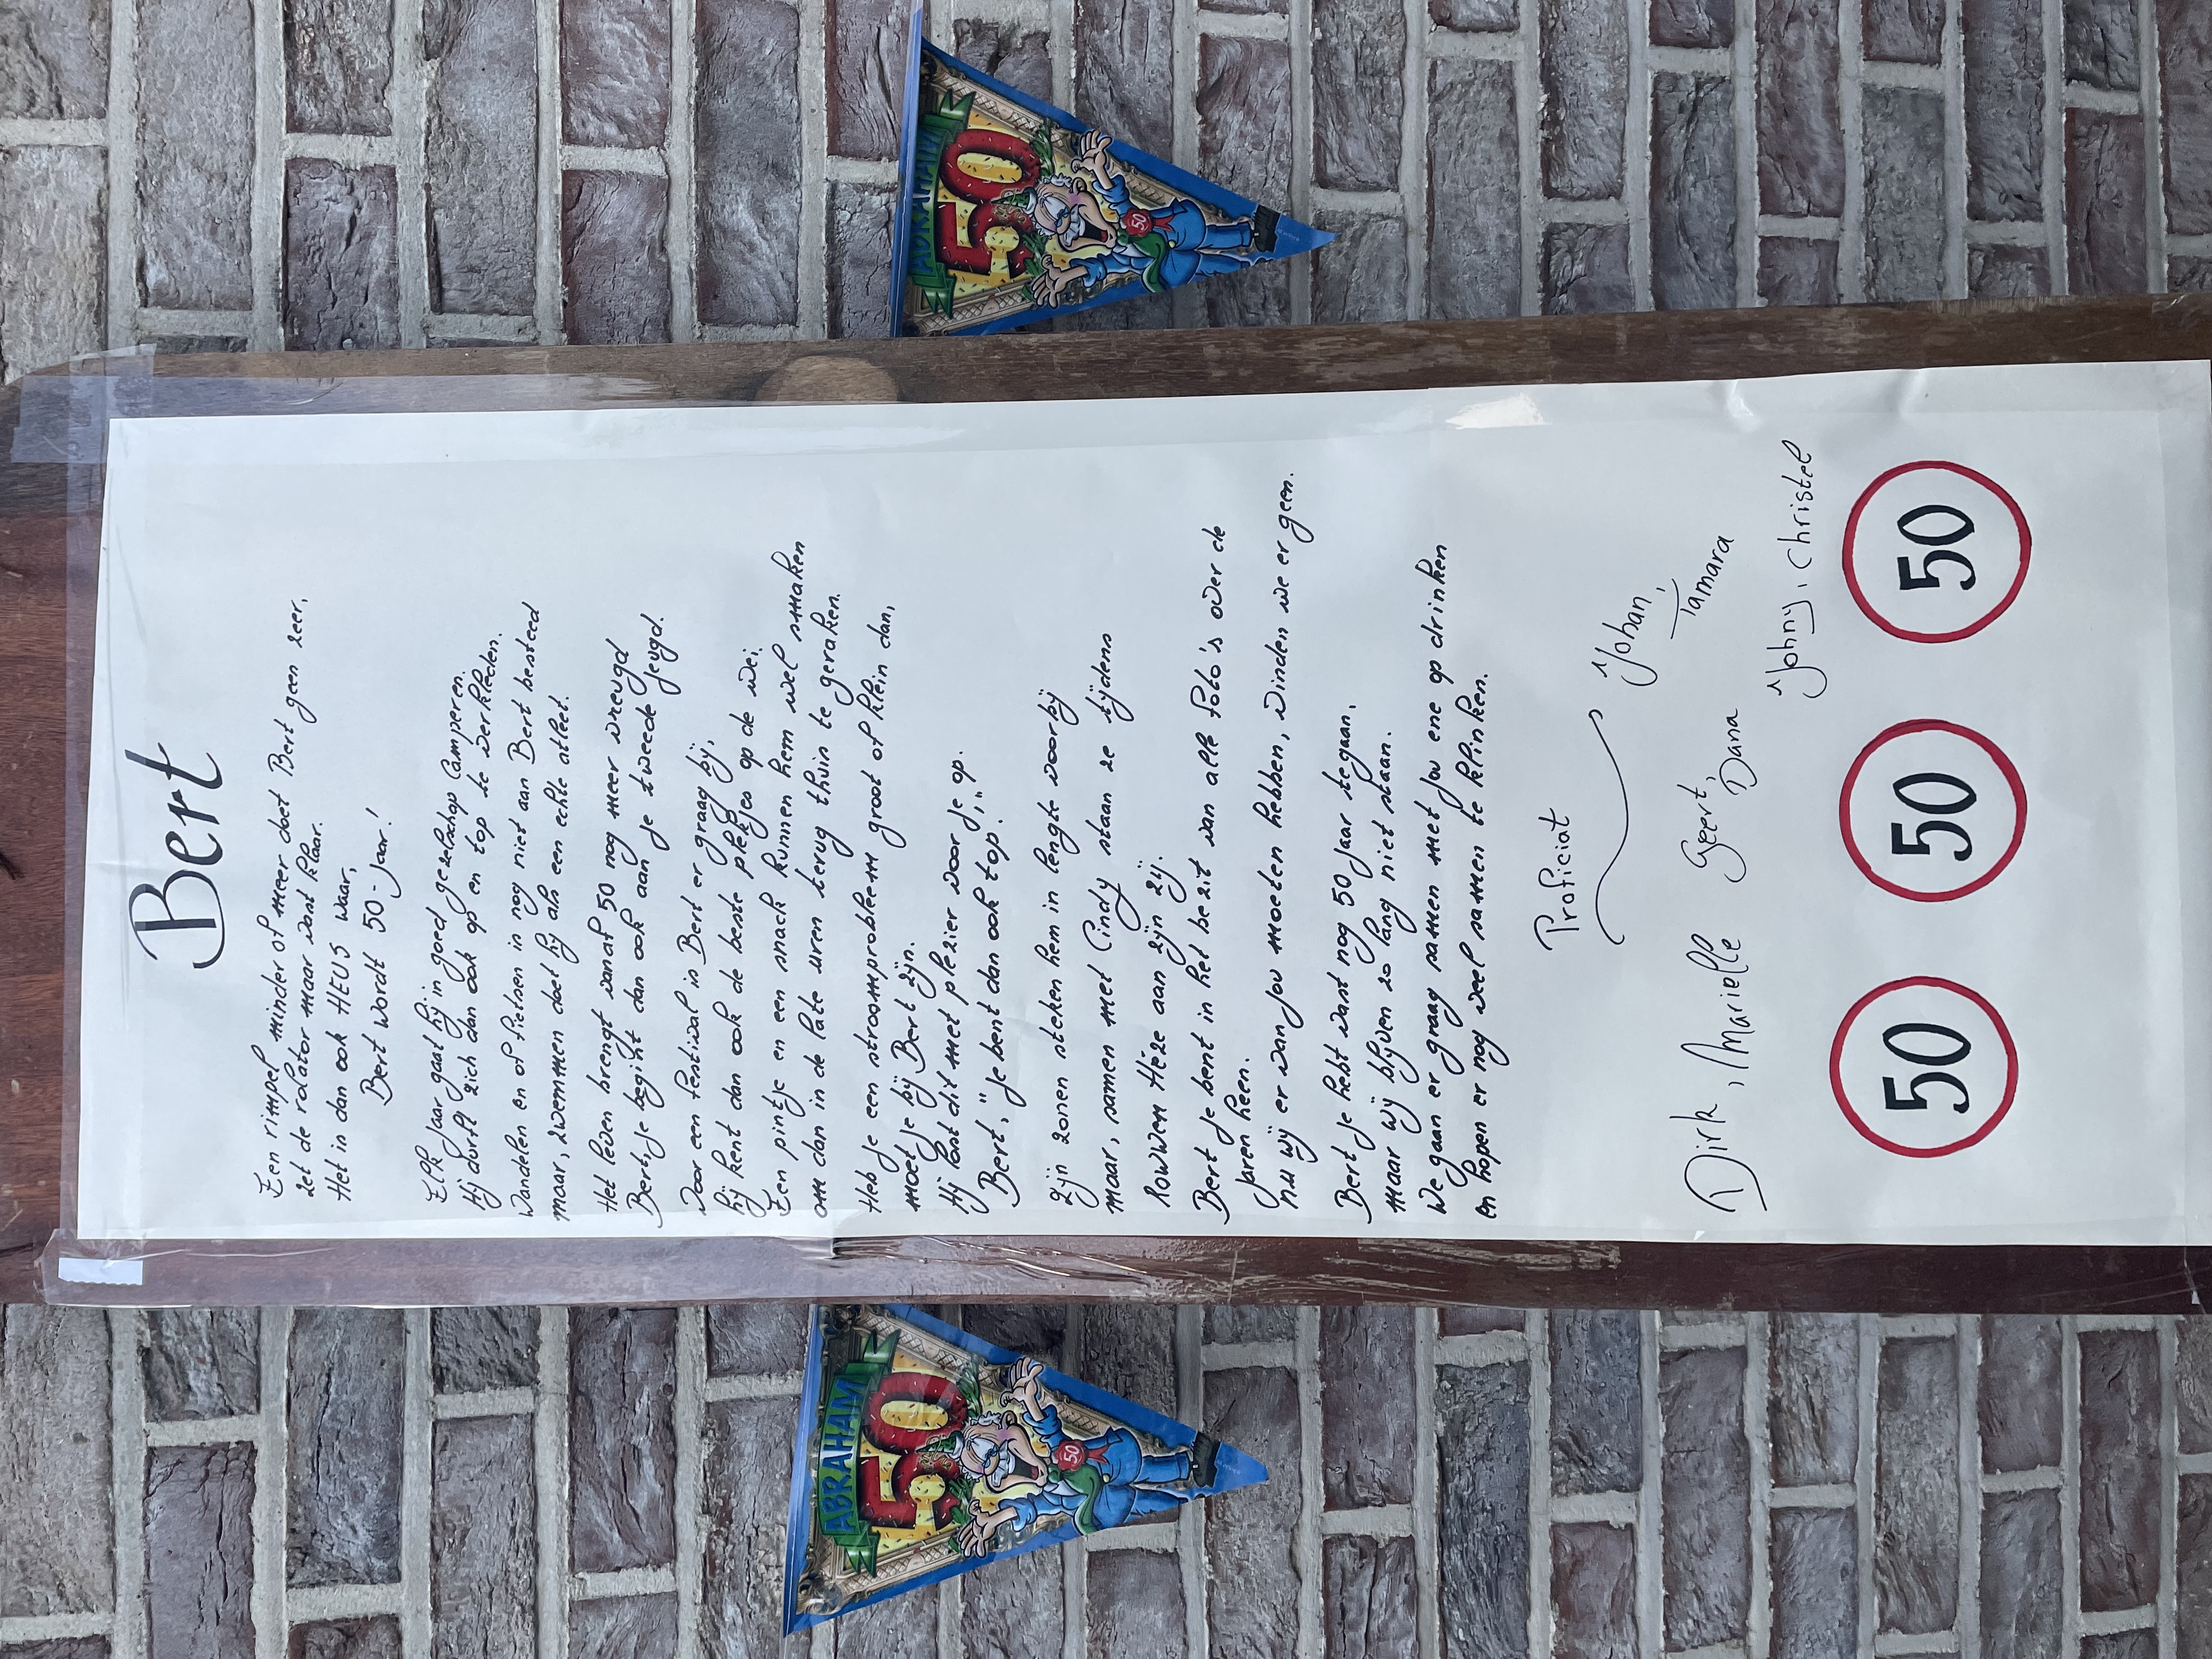 Bert
Een rimpel minder of meer doet Bert geen zeer,
zet de rolator maar vast klaar.
Het is dan ook HEUS waar,
Bert wordt 50-jaar!
Elk jaar gaat hij in goed gezelschap Camperen.
Hij durft zich dan ook op en top te verkleden.
Wandelen en of fietsen is nog niet aan Bert besteed
maar, zwemmen doet hij als een echte atleet.
Het leven brengt vanaf 50 nog meer vreugd
Bert, je begint dan ook aan je tweede jeugd.
Voor een festival is Bert er graag bij,
hij kent dan ook de beste plekjes op de wei.
Een pintje en een snack kunnen hem wel smaken
om dan in de late uren terug thuis te geraken.
Heb je een stroomprobleem groot of klein dan,
moet je bij Bert zijn.
Hij lost dit met plezier voor je op.
Bert, "je bent dan ook top!"
Zijn zonen steken hem in lengte voorbij
maar, samen met Cindy staan ze tijdens
Rowwen Hèze aan zijn zij.
Bert je bent in het bezit van alle foto's over de
jaren heen.
nu wij er van jou moeten hebben, vinden we er geen.
Bert je hebt vast nog 50 jaar te gaan,
maar wij blijven zo lang niet staan.
We gaan er graag samen met jou ene op drinken
en hopen er nog veel samen te klinken.
Proficiat
Johan,
Tamara
Dirk, Marielle Geert,
Dana
Johny, Christel
50 50 50
ABRAHAM
50
50
ABRAHAM
50
50